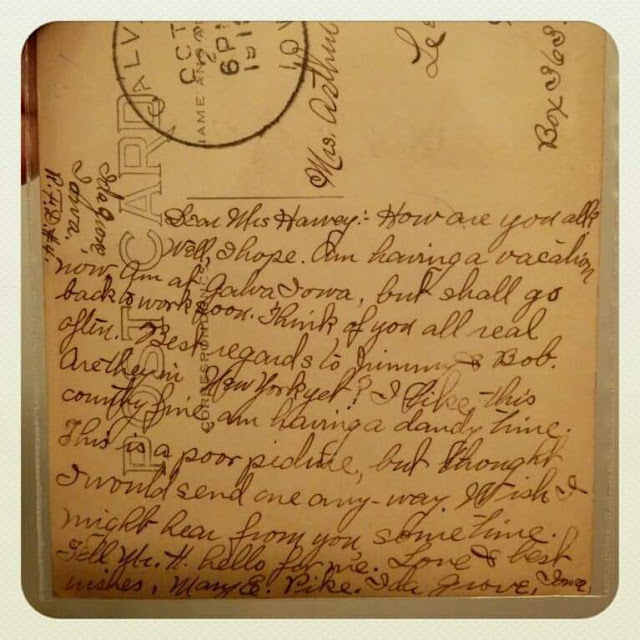 ALVA
OCT
6 PM
IOWA
NAME AND A
POST CARD
CORRESPONDENCE
Mrs. Arthur
Box 363
Ida Grove
Iowa,
R.F.D. #4.
Dear Mrs Harvey:- How are you all?
Well, I hope. Am having a vacation
now. Am at Galva Iowa, but shall go
back to work soon. Think of you all real
often. Best regards to Jimmy & Bob.
Are they in New York yet? I like this
country fine, am having a dandy time.
This is a poor picture, but thought
I would send one any-way. Wish I
might hear from you sometime.
Tell Mr. H. hello for me. Love & best
wishes, Mary E. Pike. Ida Grove, Iowa.